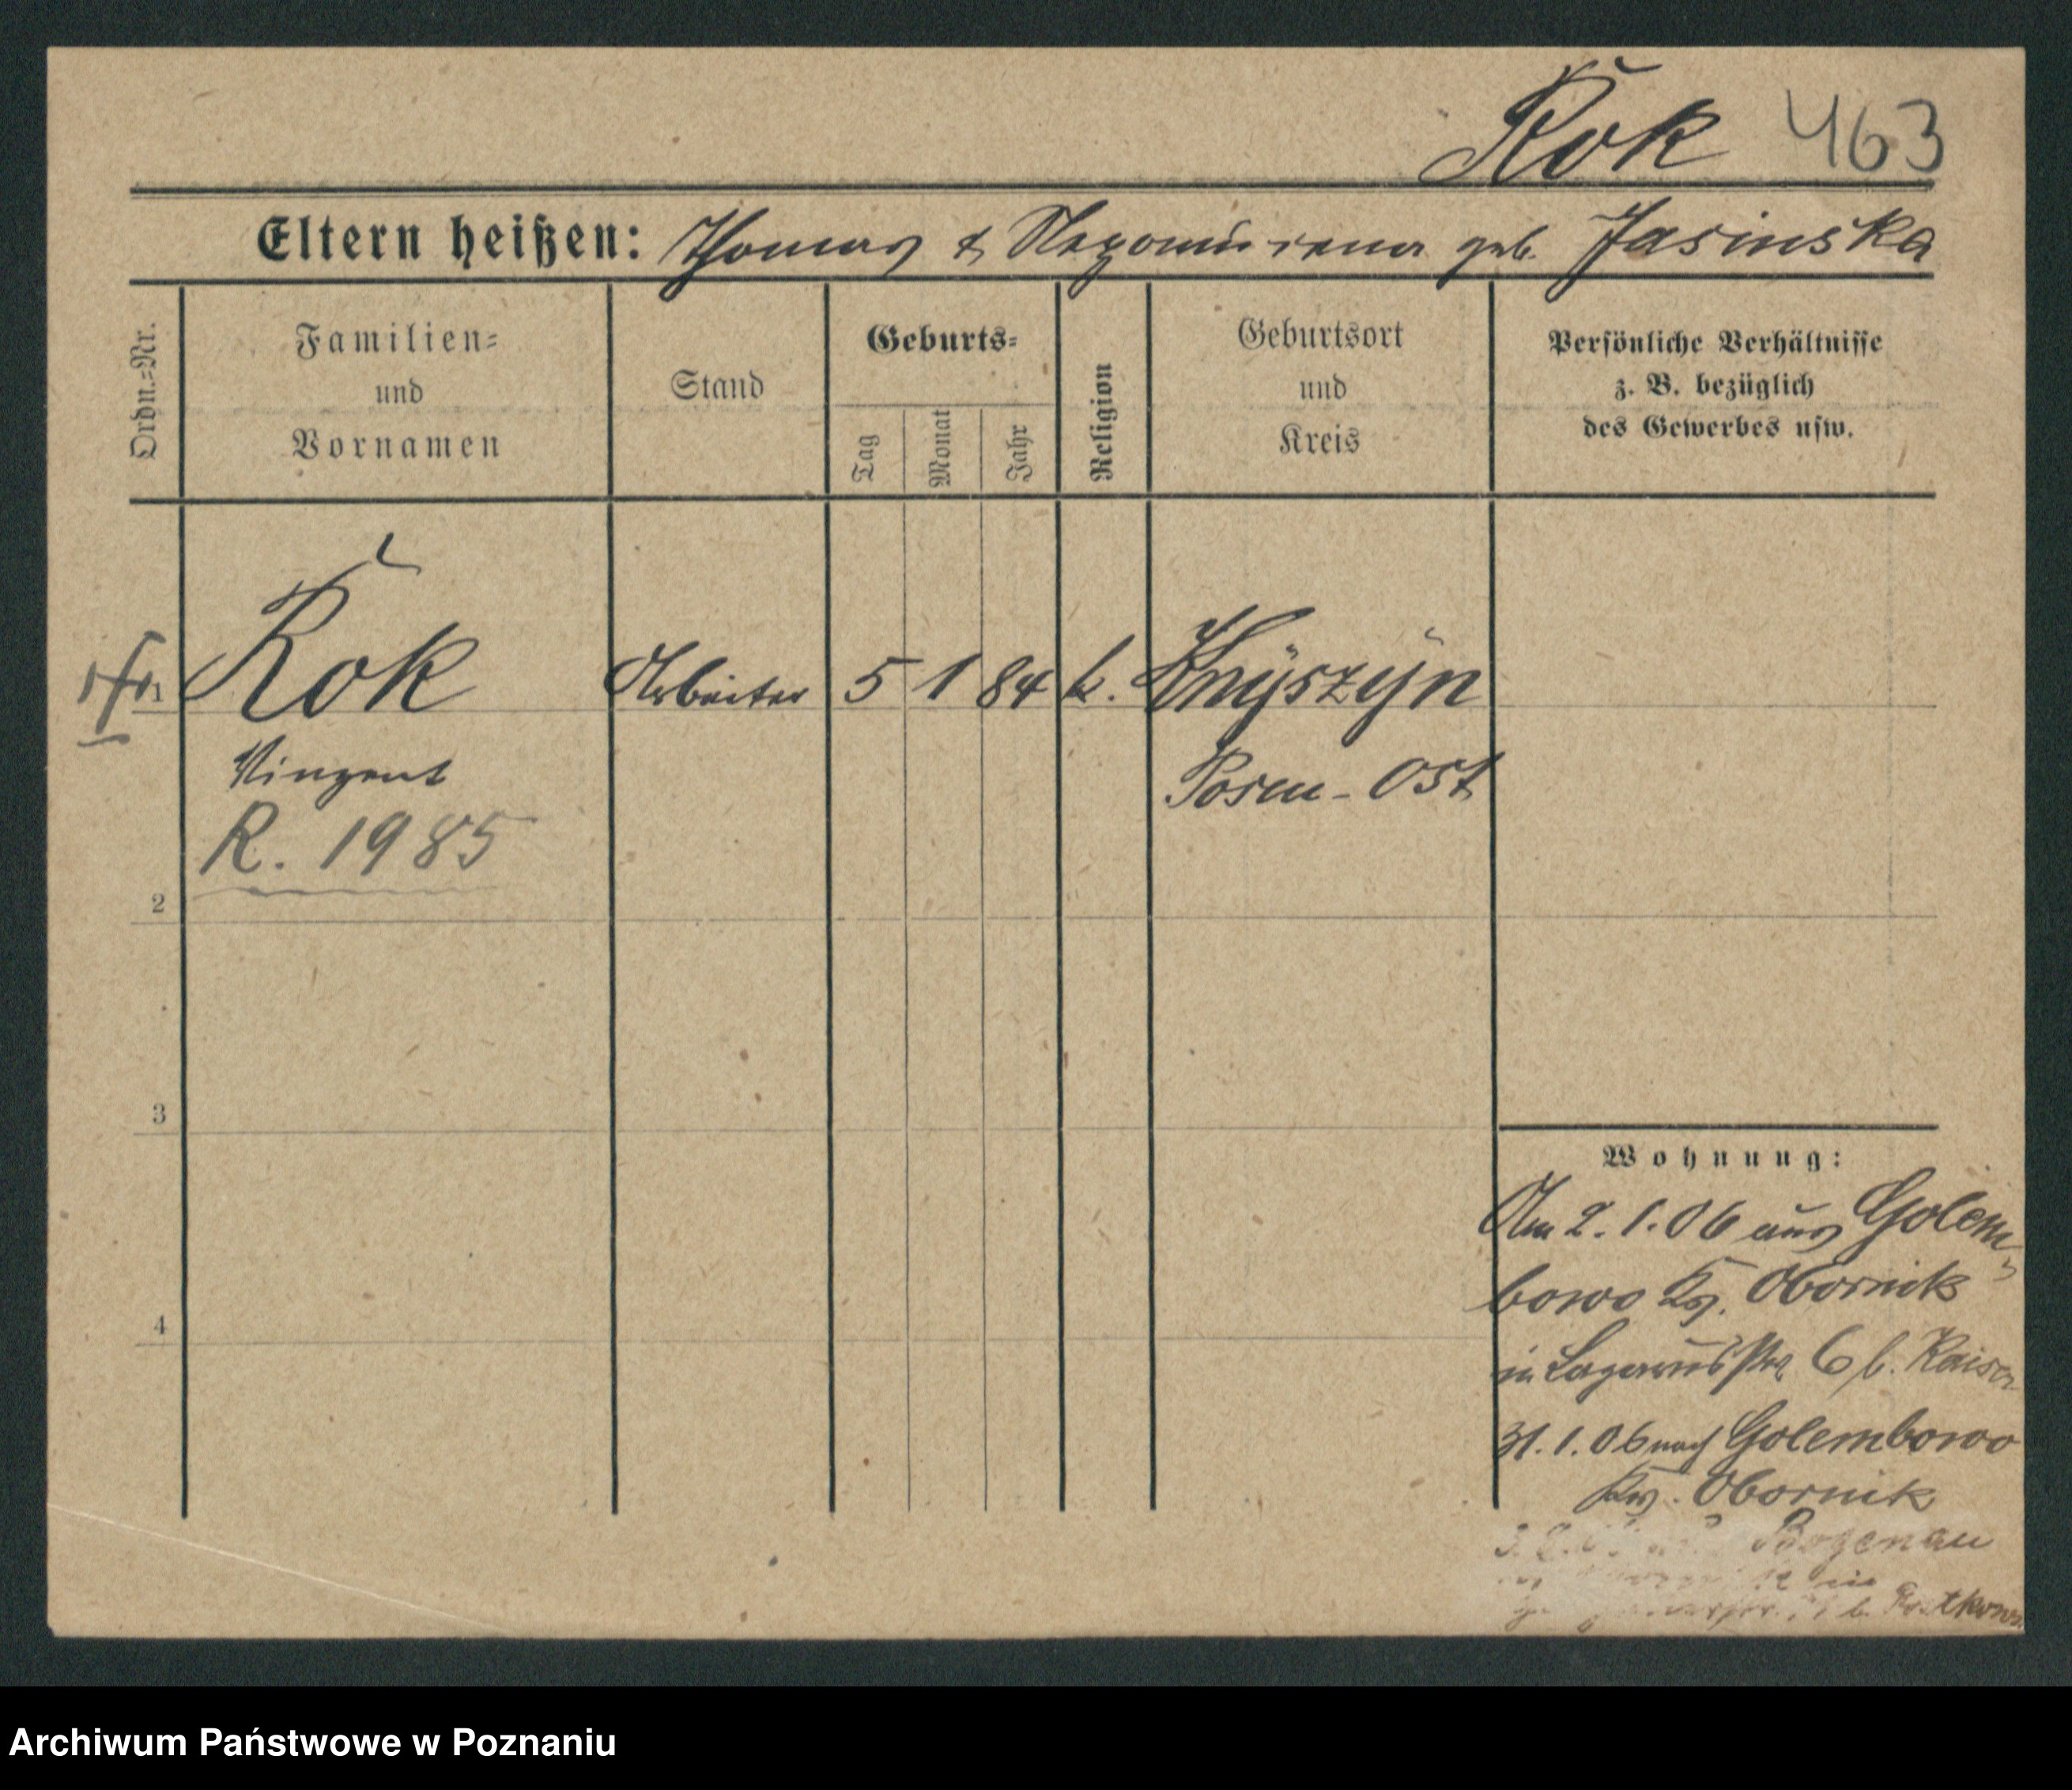 Kŏk 463
Eltern heißen: Thomas & Nepomucena geb. Jasinska
Ordn.-Nr.
Familien-
und
Vornamen
Stand
Geburts-
Tag
Monat
Jahr
Religion
Geburtsort
und
Kreis
Persönliche Verhältnisse
z. B. bezüglich
des Gewerbes usw.
1
Kŏk Arbeiter 5 1 84 k. Knyszyn
Vinzent Posen-Ost
R. 1985
2
3
4
Wohnung:
Am 2.1.06 aus Golem-
bowo Krs. Obornik
in Lazarusstr 6 b. Kaiser
31.1.06 nach Golembowo
Krs. Obornik
Bogenau
in
b.
Archiwum Państwowe w Poznaniu